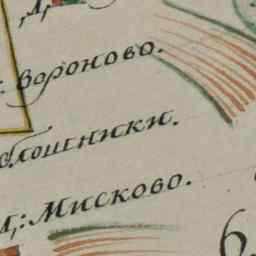 Д,
: Вороново.
блошники.
Д,: Мисково.